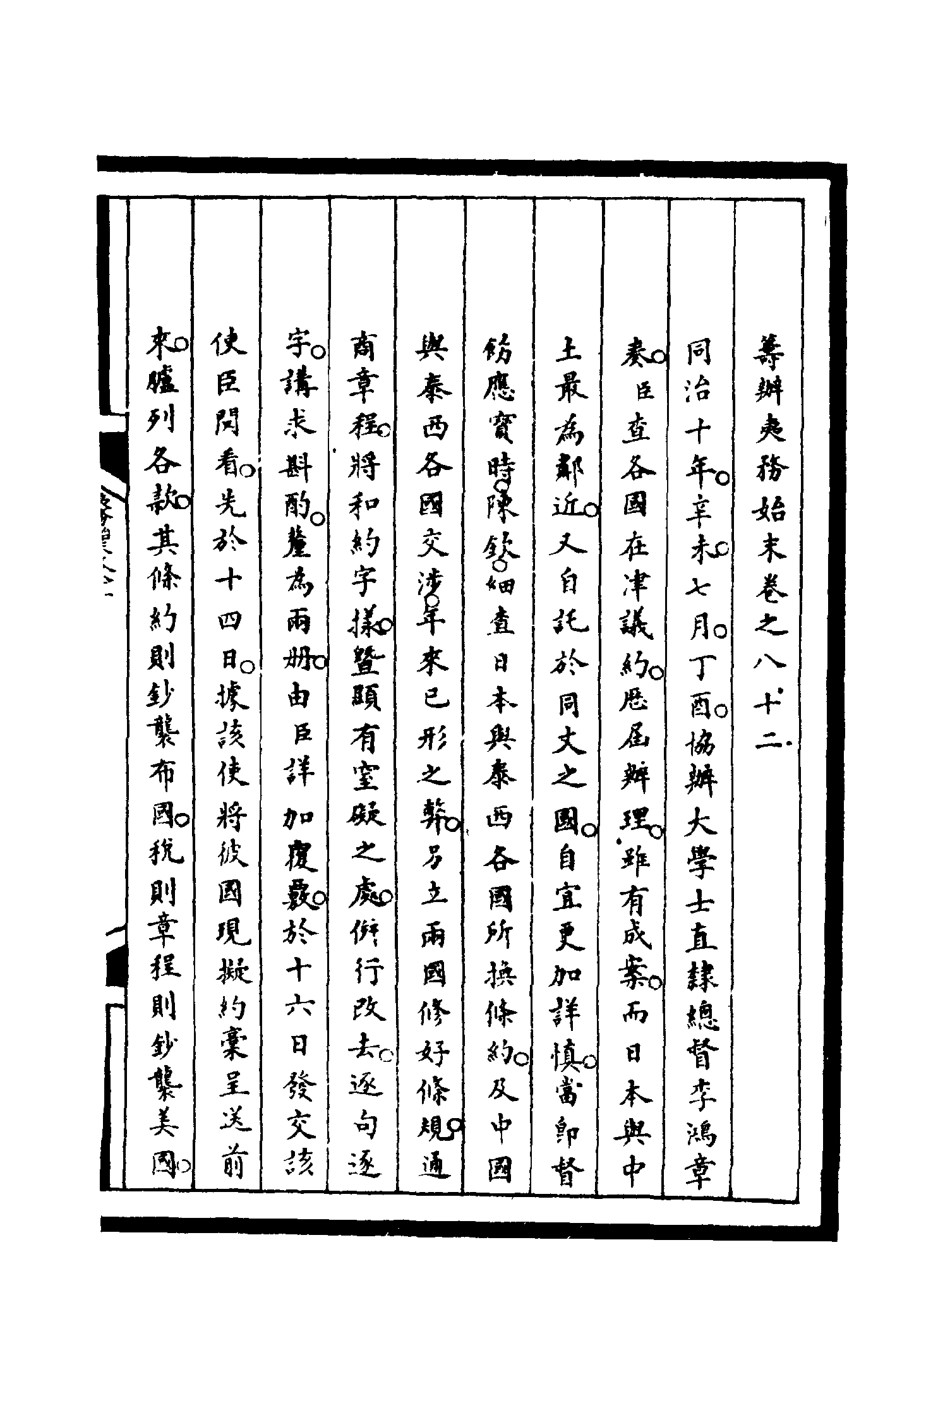 籌辦夷務始末卷之八十二
同治十年。辛未。七月。丁酉。協辦大學士直隸總督李鴻章
奏。臣查各國在津議約。歷屆辦理。雖有成案。而日本與中
土最為鄰近。又自託於同文之國。自宜更加詳慎。當卽督
飭應寶時。陳欽。細查日本與泰西各國所換條約。及中國
與泰西各國交涉。年來已形之弊。另立兩國修好條規。通
商章程。將和約字樣。暨顯有窒礙之處。倂行改去。逐句逐
字。講求斟酌。釐為兩册。由臣詳加覆覈。於十六日發交該
使臣閱看。先於十四日。據該使將彼國現擬約稾呈送前
來。臚列各款。其條約則鈔襲布國。稅則章程則鈔襲美國。